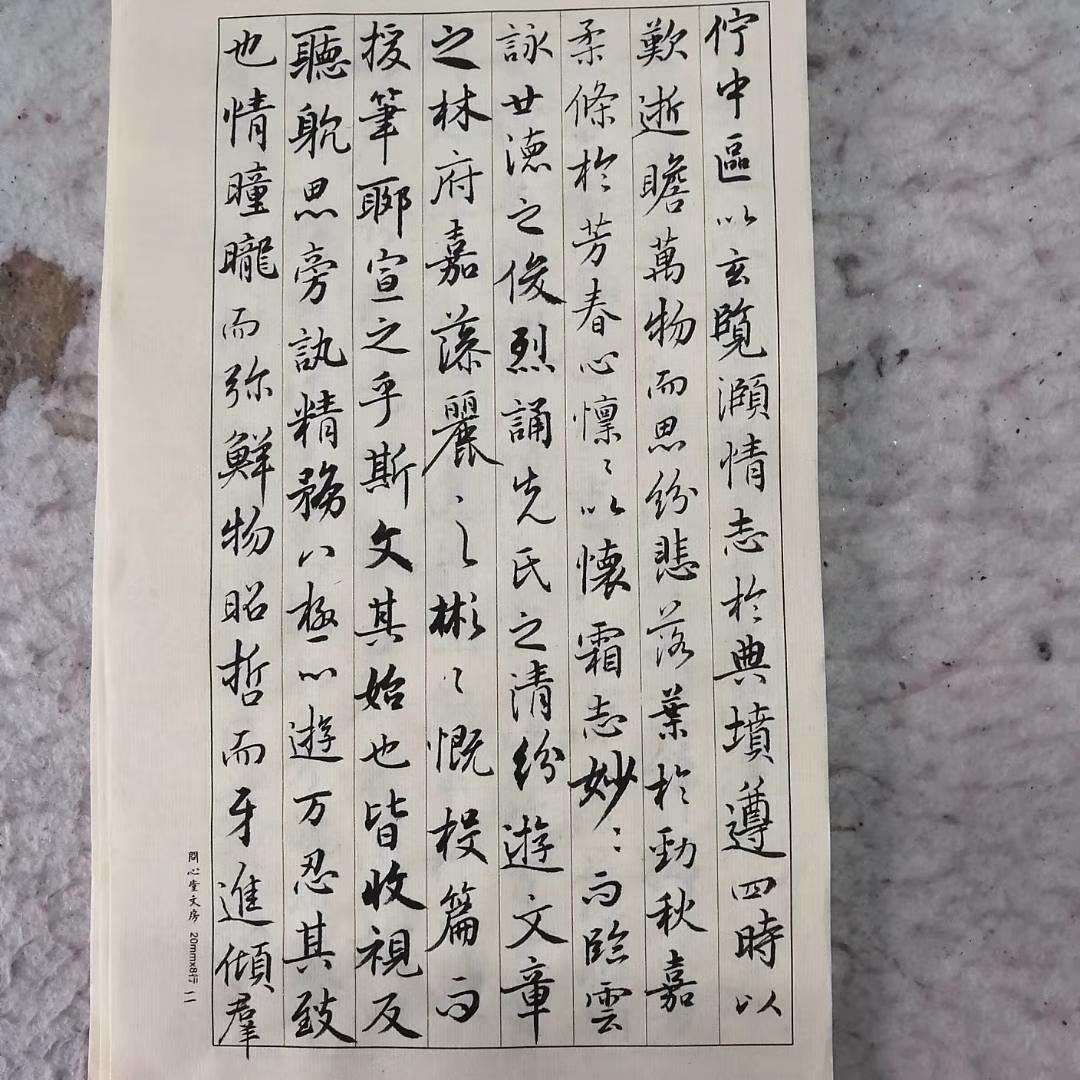 佇中區以玄覽頤情志於典墳遵四時以
歎逝瞻萬物而思紛悲落葉於勁秋嘉
柔條於芳春心懍〻以懷霜志妙〻而臨雲
詠世德之俊烈誦先氏之清紛遊文章
之林府嘉藻麗〻之彬〻慨投篇而
授筆聊宣之乎斯文其始也皆收視反
聽躭思旁訊精務八極心遊万忍其致
也情曈曨而弥鮮物昭哲而牙進傾羣
問心堂文房 20mmx8行 二